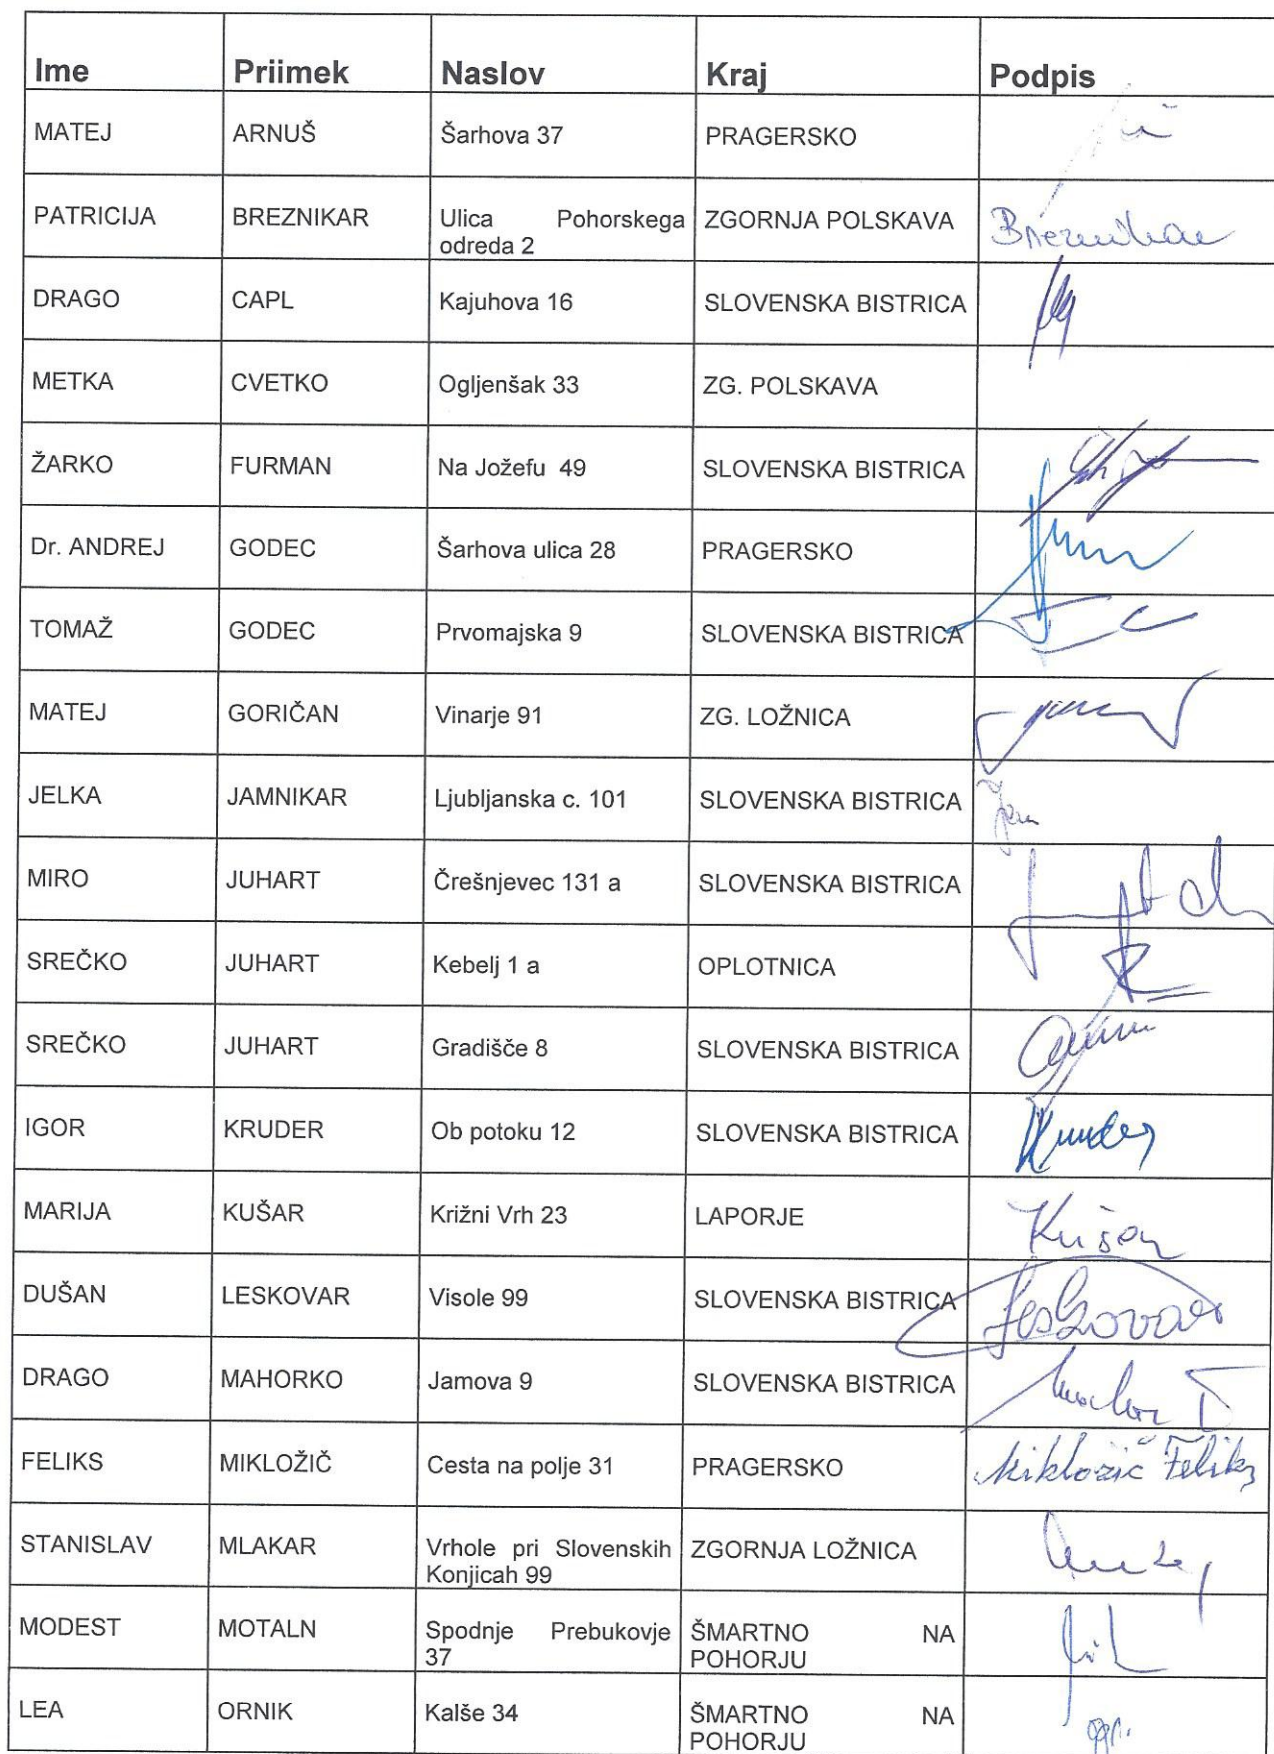 Ime Priimek Naslov Kraj Podpis
MATEJ ARNUŠ Šarhova 37 PRAGERSKO
PATRICIJA BREZNIKAR Ulica Pohorskega ZGORNJA POLSKAVA Breznikar
odreda 2
DRAGO CAPL Kajuhova 16 SLOVENSKA BISTRICA
METKA CVETKO Ogljenšak 33 ZG. POLSKAVA
ŽARKO FURMAN Na Jožefu 49 SLOVENSKA BISTRICA
Dr. ANDREJ GODEC Šarhova ulica 28 PRAGERSKO
TOMAŽ GODEC Prvomajska 9 SLOVENSKA BISTRICA
MATEJ GORIČAN Vinarje 91 ZG. LOŽNICA
JELKA JAMNIKAR Ljubljanska c. 101 SLOVENSKA BISTRICA
MIRO JUHART Črešnjevec 131 a SLOVENSKA BISTRICA
SREČKO JUHART Kebelj 1 a OPLOTNICA
SREČKO JUHART Gradišče 8 SLOVENSKA BISTRICA
IGOR KRUDER Ob potoku 12 SLOVENSKA BISTRICA Kruder
MARIJA KUŠAR Križni Vrh 23 LAPORJE Kušar
DUŠAN LESKOVAR Visole 99 SLOVENSKA BISTRICA Leskovar
DRAGO MAHORKO Jamova 9 SLOVENSKA BISTRICA
FELIKS MIKLOŽIČ Cesta na polje 31 PRAGERSKO Mikložič Feliks
STANISLAV MLAKAR Vrhole pri Slovenskih ZGORNJA LOŽNICA
Konjicah 99
MODEST MOTALN Spodnje Prebukovje ŠMARTNO NA
37 POHORJU
LEA ORNIK Kalše 34 ŠMARTNO NA
POHORJU